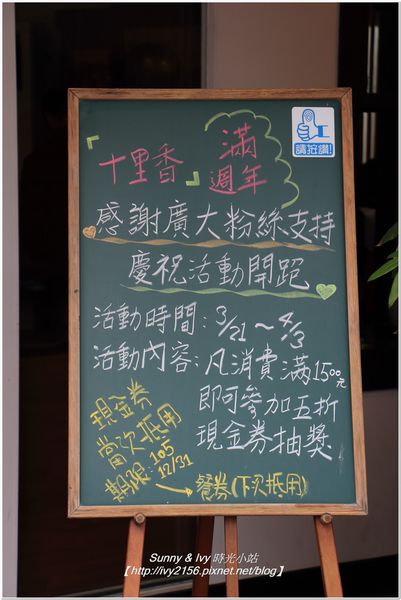 請按讚!
「十里香」滿
週年
感謝廣大粉絲支持
慶祝活動開跑
活動時間:3/21~4/3
活動內容:凡消費滿1500元
即可參加五折
現金券抽獎
現金券
當次抵用
期限:105
12/31
→餐券(下次抵用)
Sunny & Ivy 時光小站
【http://ivy2156.pixnet.net/blog】